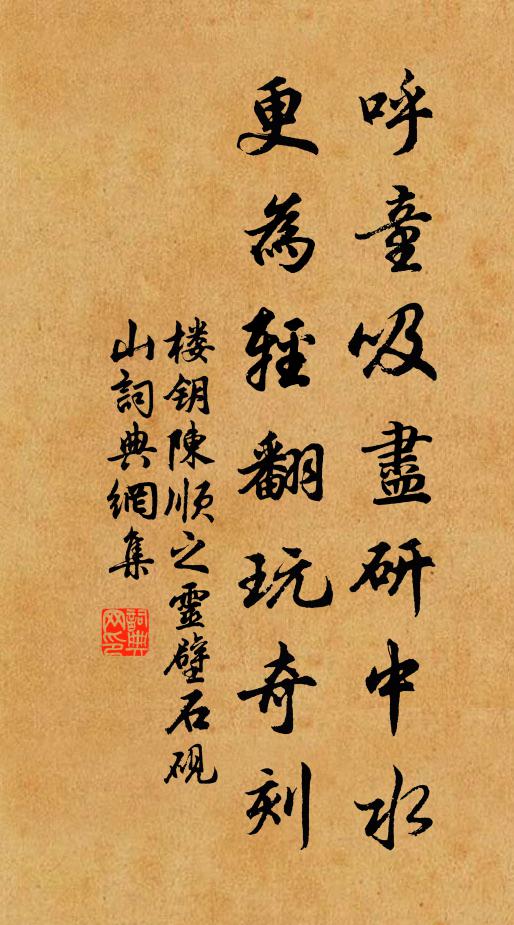 呼童吸盡研中水
更為輕翻玩奇刻
楼鑰陳順之靈壁石硯
山詞典網集
詞典网印